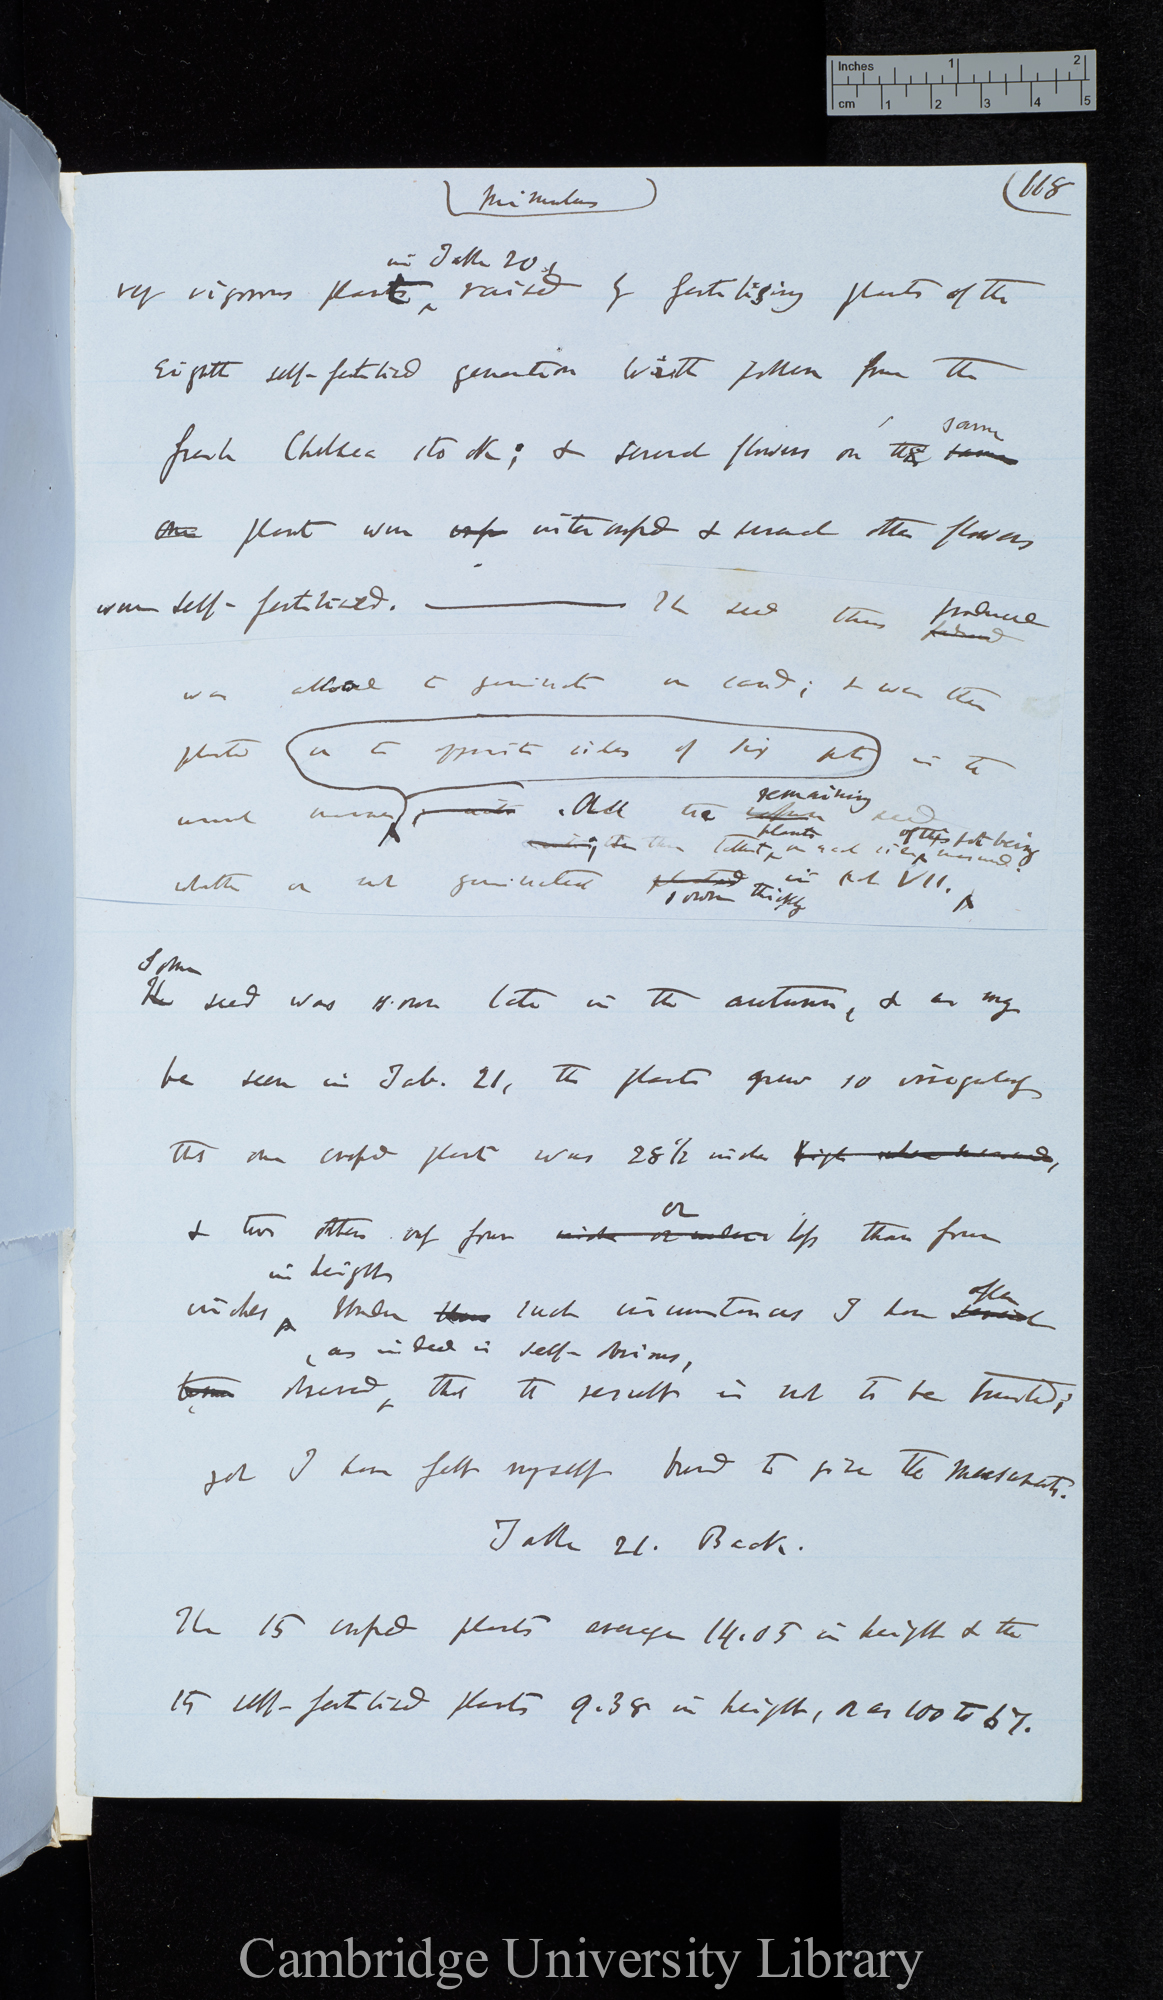 Inches 1 2
cm 1 2 3 4 5
Mimulus
(118
in Table 20
very vigorous plants raised by fertilising plants of the
Eighth self-fertilised generation with pollen from the
fresh Chelsea stock; & several flowers on the same
same
one plant were intercrossed & several other flowers
were self-fertilised. ——— The seed thus produced
was allowed to germinate on sand; & were then
planted on the opposite sides of six pots in the
usual manner. All the remaining seed
then the tallest plants on each side of this pot being measured.
whether or not germinated planted in pot VII.
sown thickly
Some
The seed was sown late in the autumn, & as may
be seen in Tab. 21, the plants grew so irregularly
that one crossed plant was 28 1/2 inches high when measured,
& two others only four inches or under less than four
or
in height
inches. Under these such circumstances I have several
often
, as indeed is self-obvious,
observed, that the result is not to be trusted;
yet I have felt myself bound to give the measurements.
Table 21. Back.
The 15 crossed plants average 14.05 in height & the
15 self-fertilised plants 9.38 in height, or as 100 to 67.
Cambridge University Library